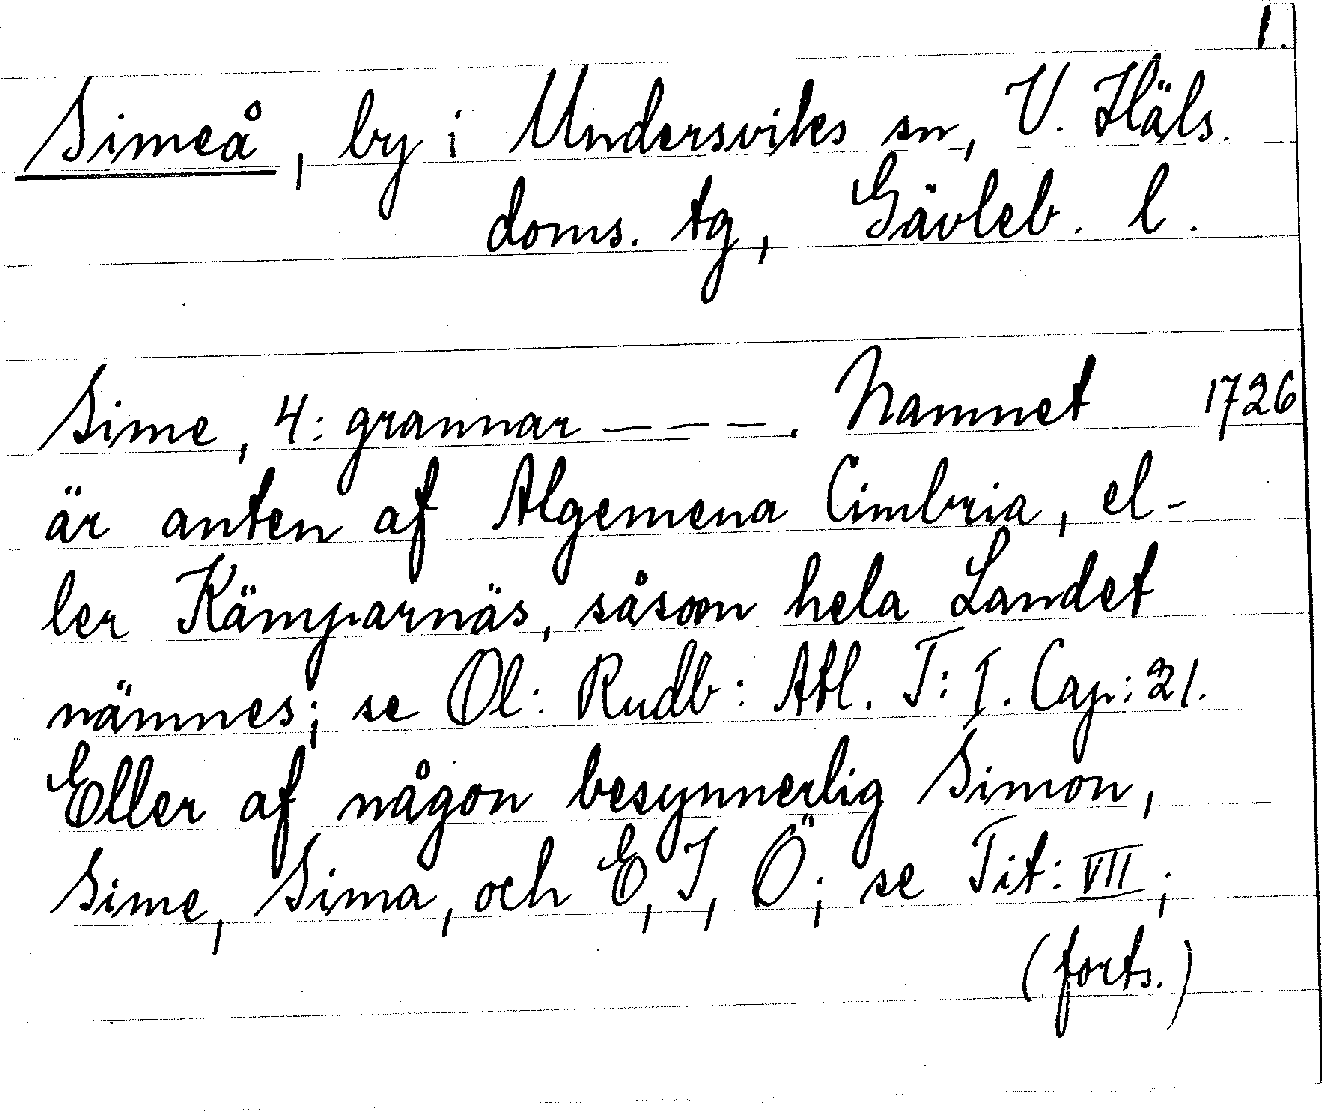 1.
Simeå, by i Undersviks sn, V. Häls.
doms. tg, Gävleb. l.
Sime, 4: grannar – – – . Namnet 1726
är anten af Algemena Cimbria, el-
ler Kämparnäs, såsom hela Landet
nämnes; se Ol: Rudb: Atl. T: I. Cap: 21.
Eller af någon besynnerlig Simon,
Sime, Sima, och E, I, Ö; se Tit: VII;
(forts.)